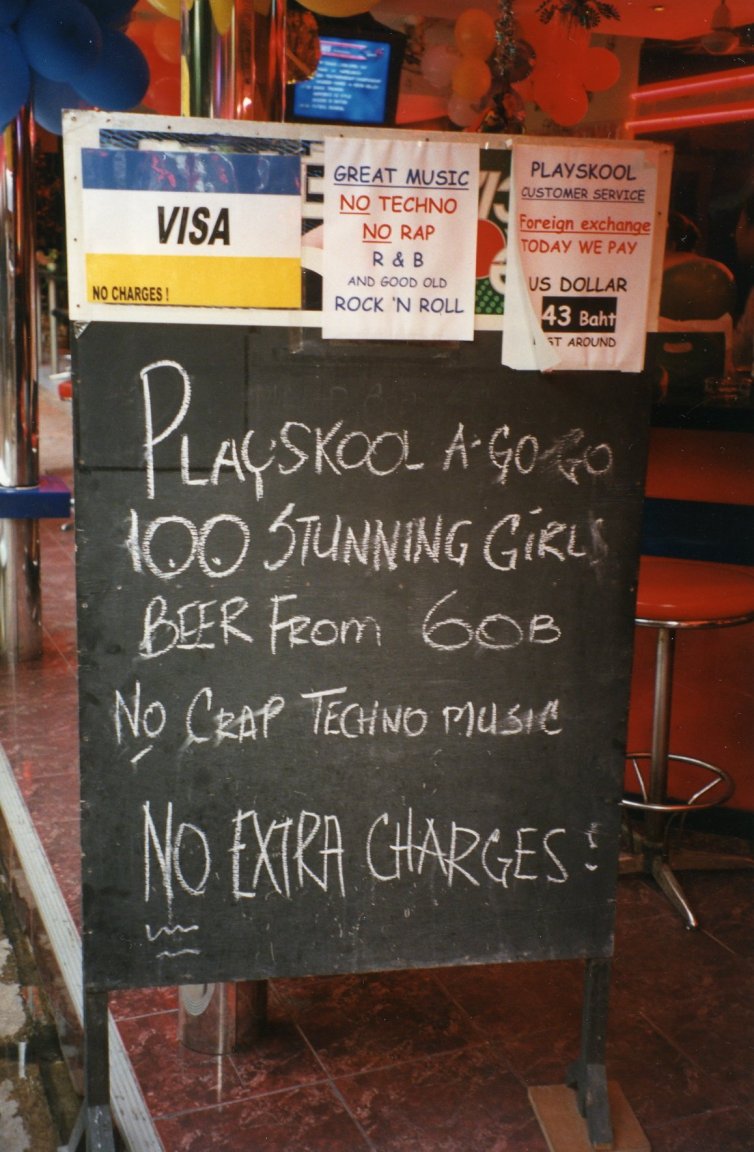 VISA
NO CHARGES !
GREAT MUSIC
NO TECHNO
NO RAP
R & B
AND GOOD OLD
ROCK 'N ROLL
PLAYSKOOL
CUSTOMER SERVICE
Foreign exchange
TODAY WE PAY
US DOLLAR
43 Baht
ST AROUND
PLAYSKOOL A-GO GO
100 STUNNING GIRLS
BEER From 60B
NO CRAP TECHNO MUSIC
NO EXTRA CHARGES!